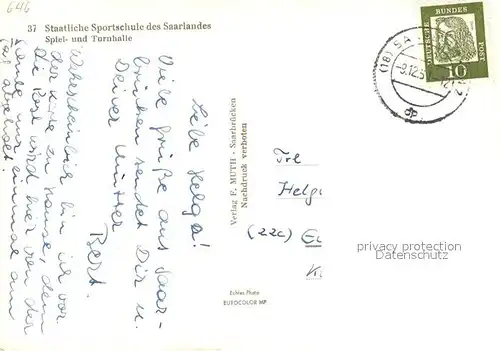 646
37 Staatliche Sportschule des Saarlandes
Spiel- und Turnhalle
Liebe Helga!
Viele Grüße aus Saar-
brücken sendet Dir u.
Deiner Mutter
Bert.
Wahrscheinlich bin ich vor
der Karte zu Hause, denn
die Post wird hier von der
Schule nur einmal am
Tag abgeholt.
Verlag F. MUTH - Saarbrücken
Nachdruck verboten
Echtes Photo
EUROCOLOR MP
DEUTSCHE BUNDESPOST
10
(18) SA
-9.12.6
2
dp
Frl
Helga
(22c)
privacy protection